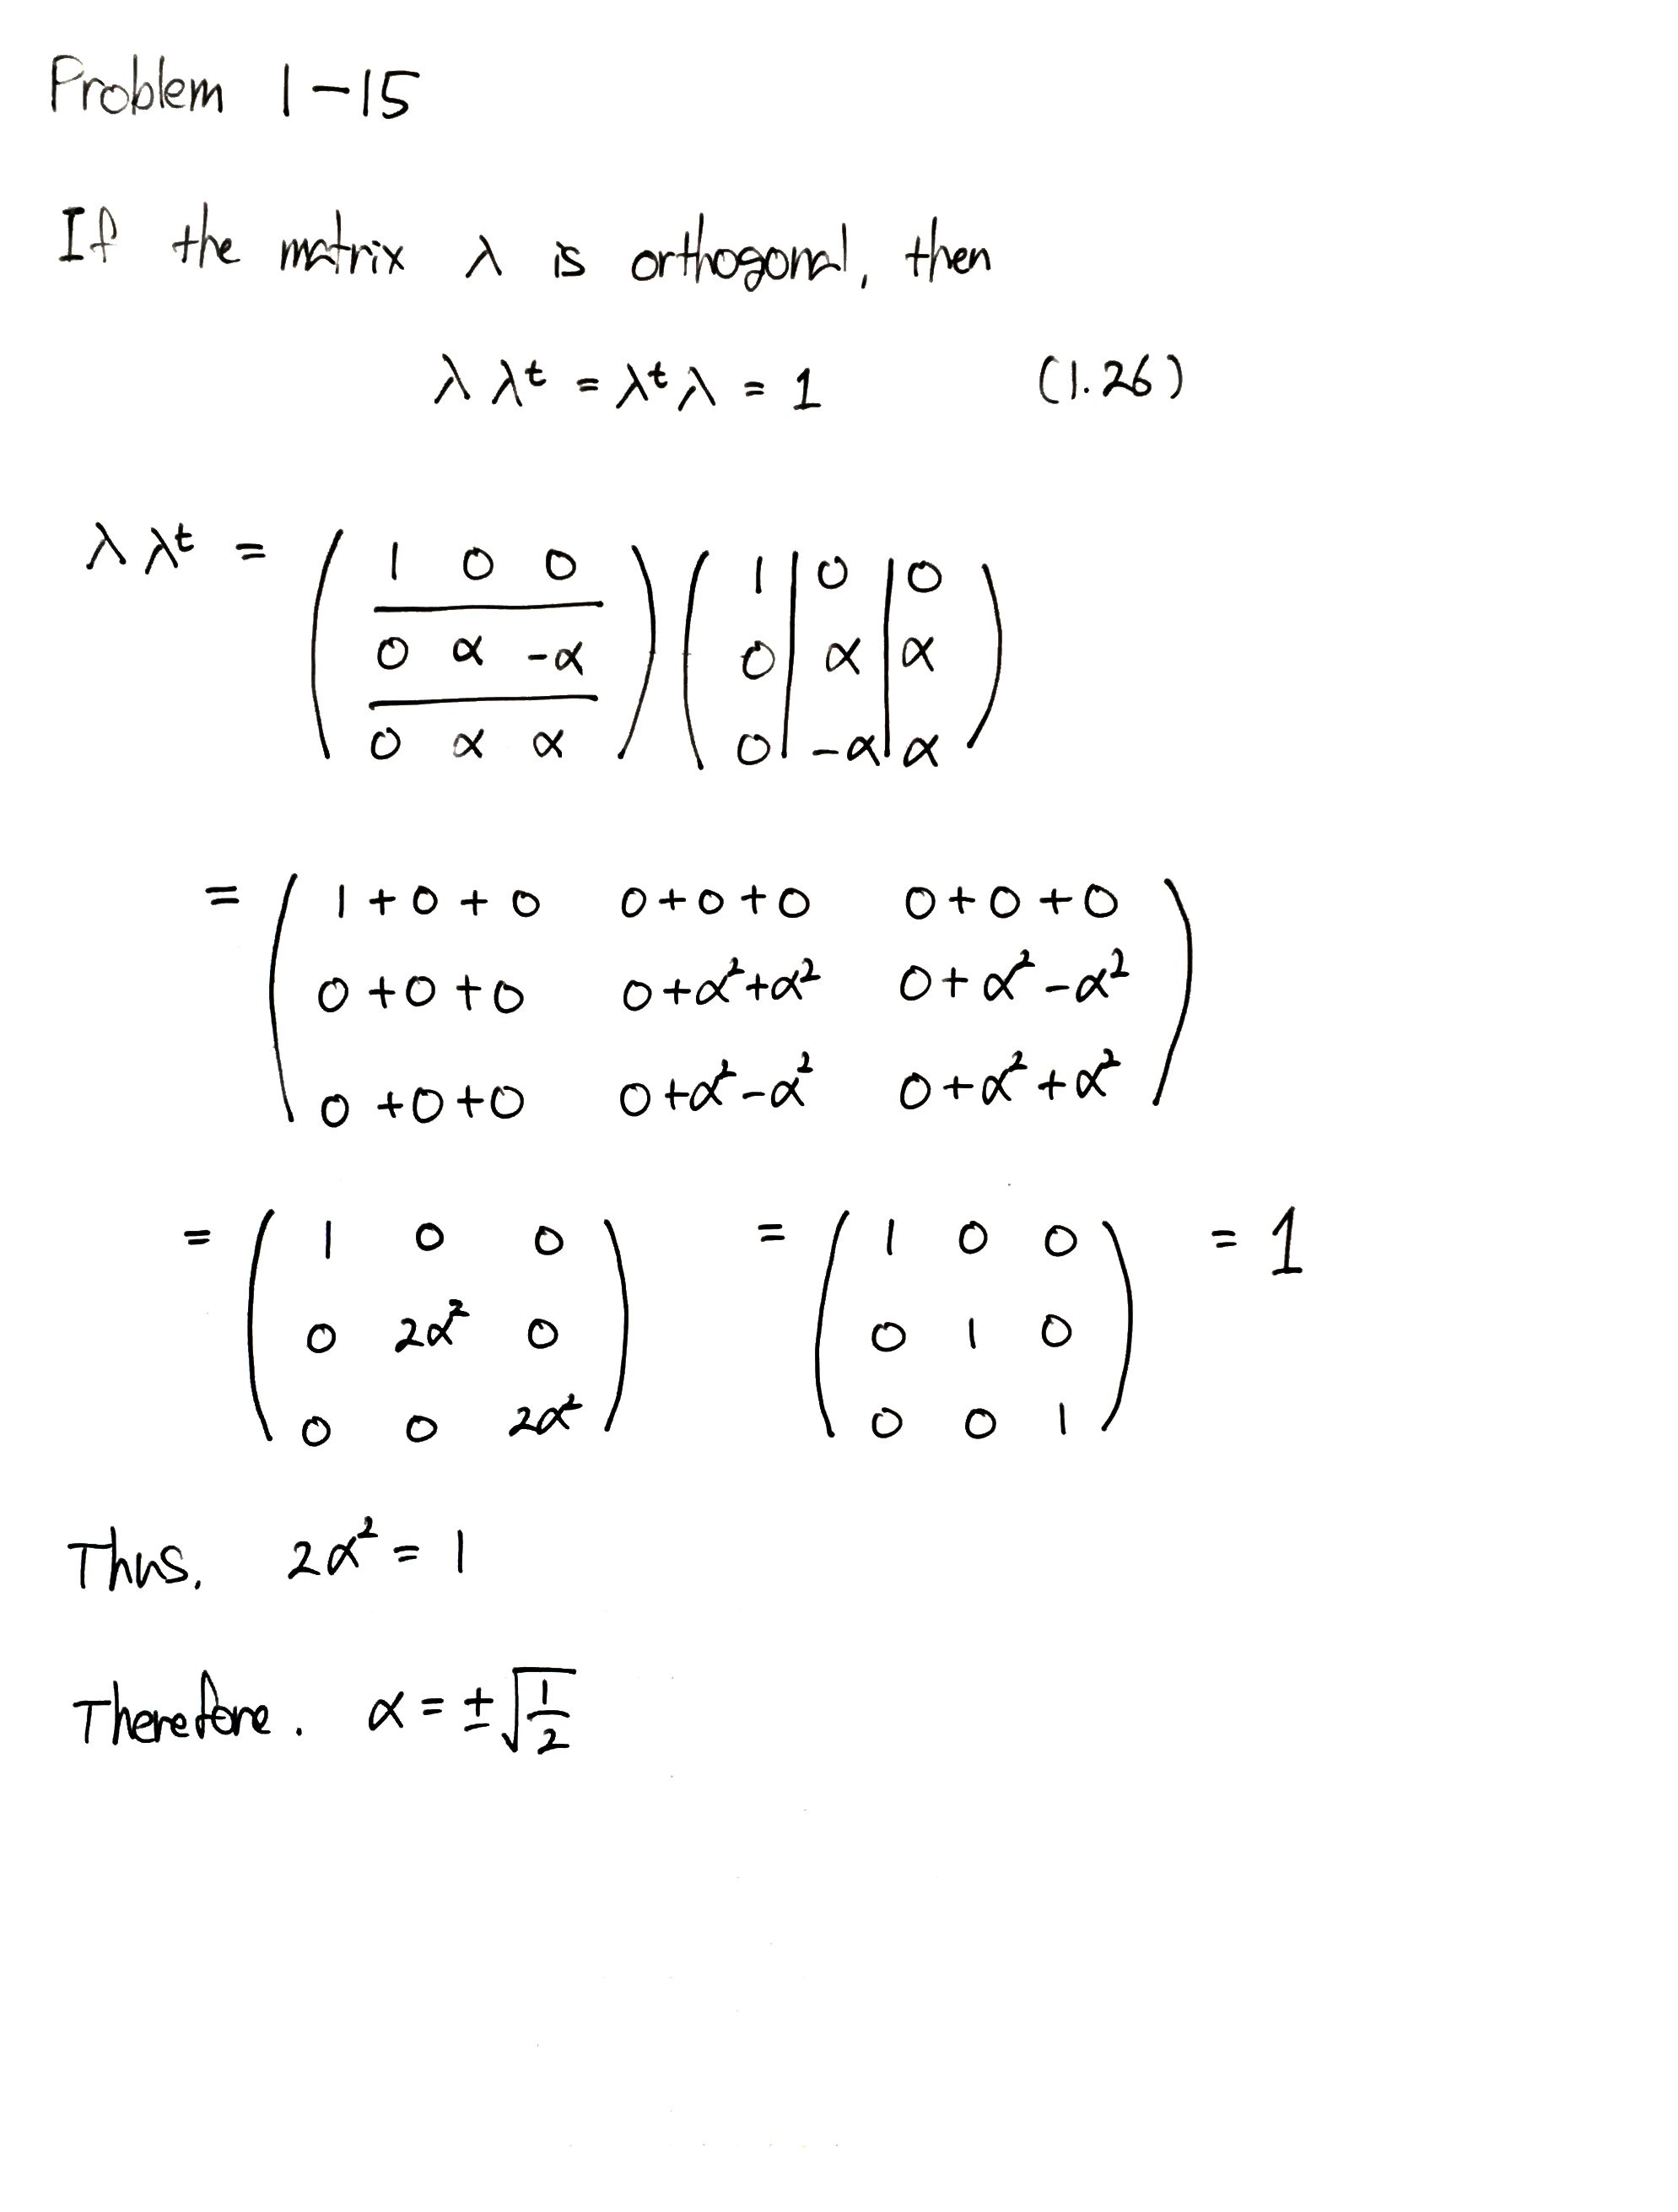 Problem 1-15
If the matrix λ is orthogonal, then
λ λᵗ = λᵗ λ = 1 (1.26)
λ λᵗ = ( 1 0 0 ) ( 1 | 0 | 0 )
0 α -α 0 | α | α
0 α α 0 | -α | α
= ( 1+0+0 0+0+0 0+0+0 )
0+0+0 0+α²+α² 0+α²-α²
0+0+0 0+α²-α² 0+α²+α²
= ( 1 0 0 ) = ( 1 0 0 ) = 1
0 2α² 0 0 1 0
0 0 2α² 0 0 1
Thus, 2α² = 1
Therefore. α = ±√(1/2)